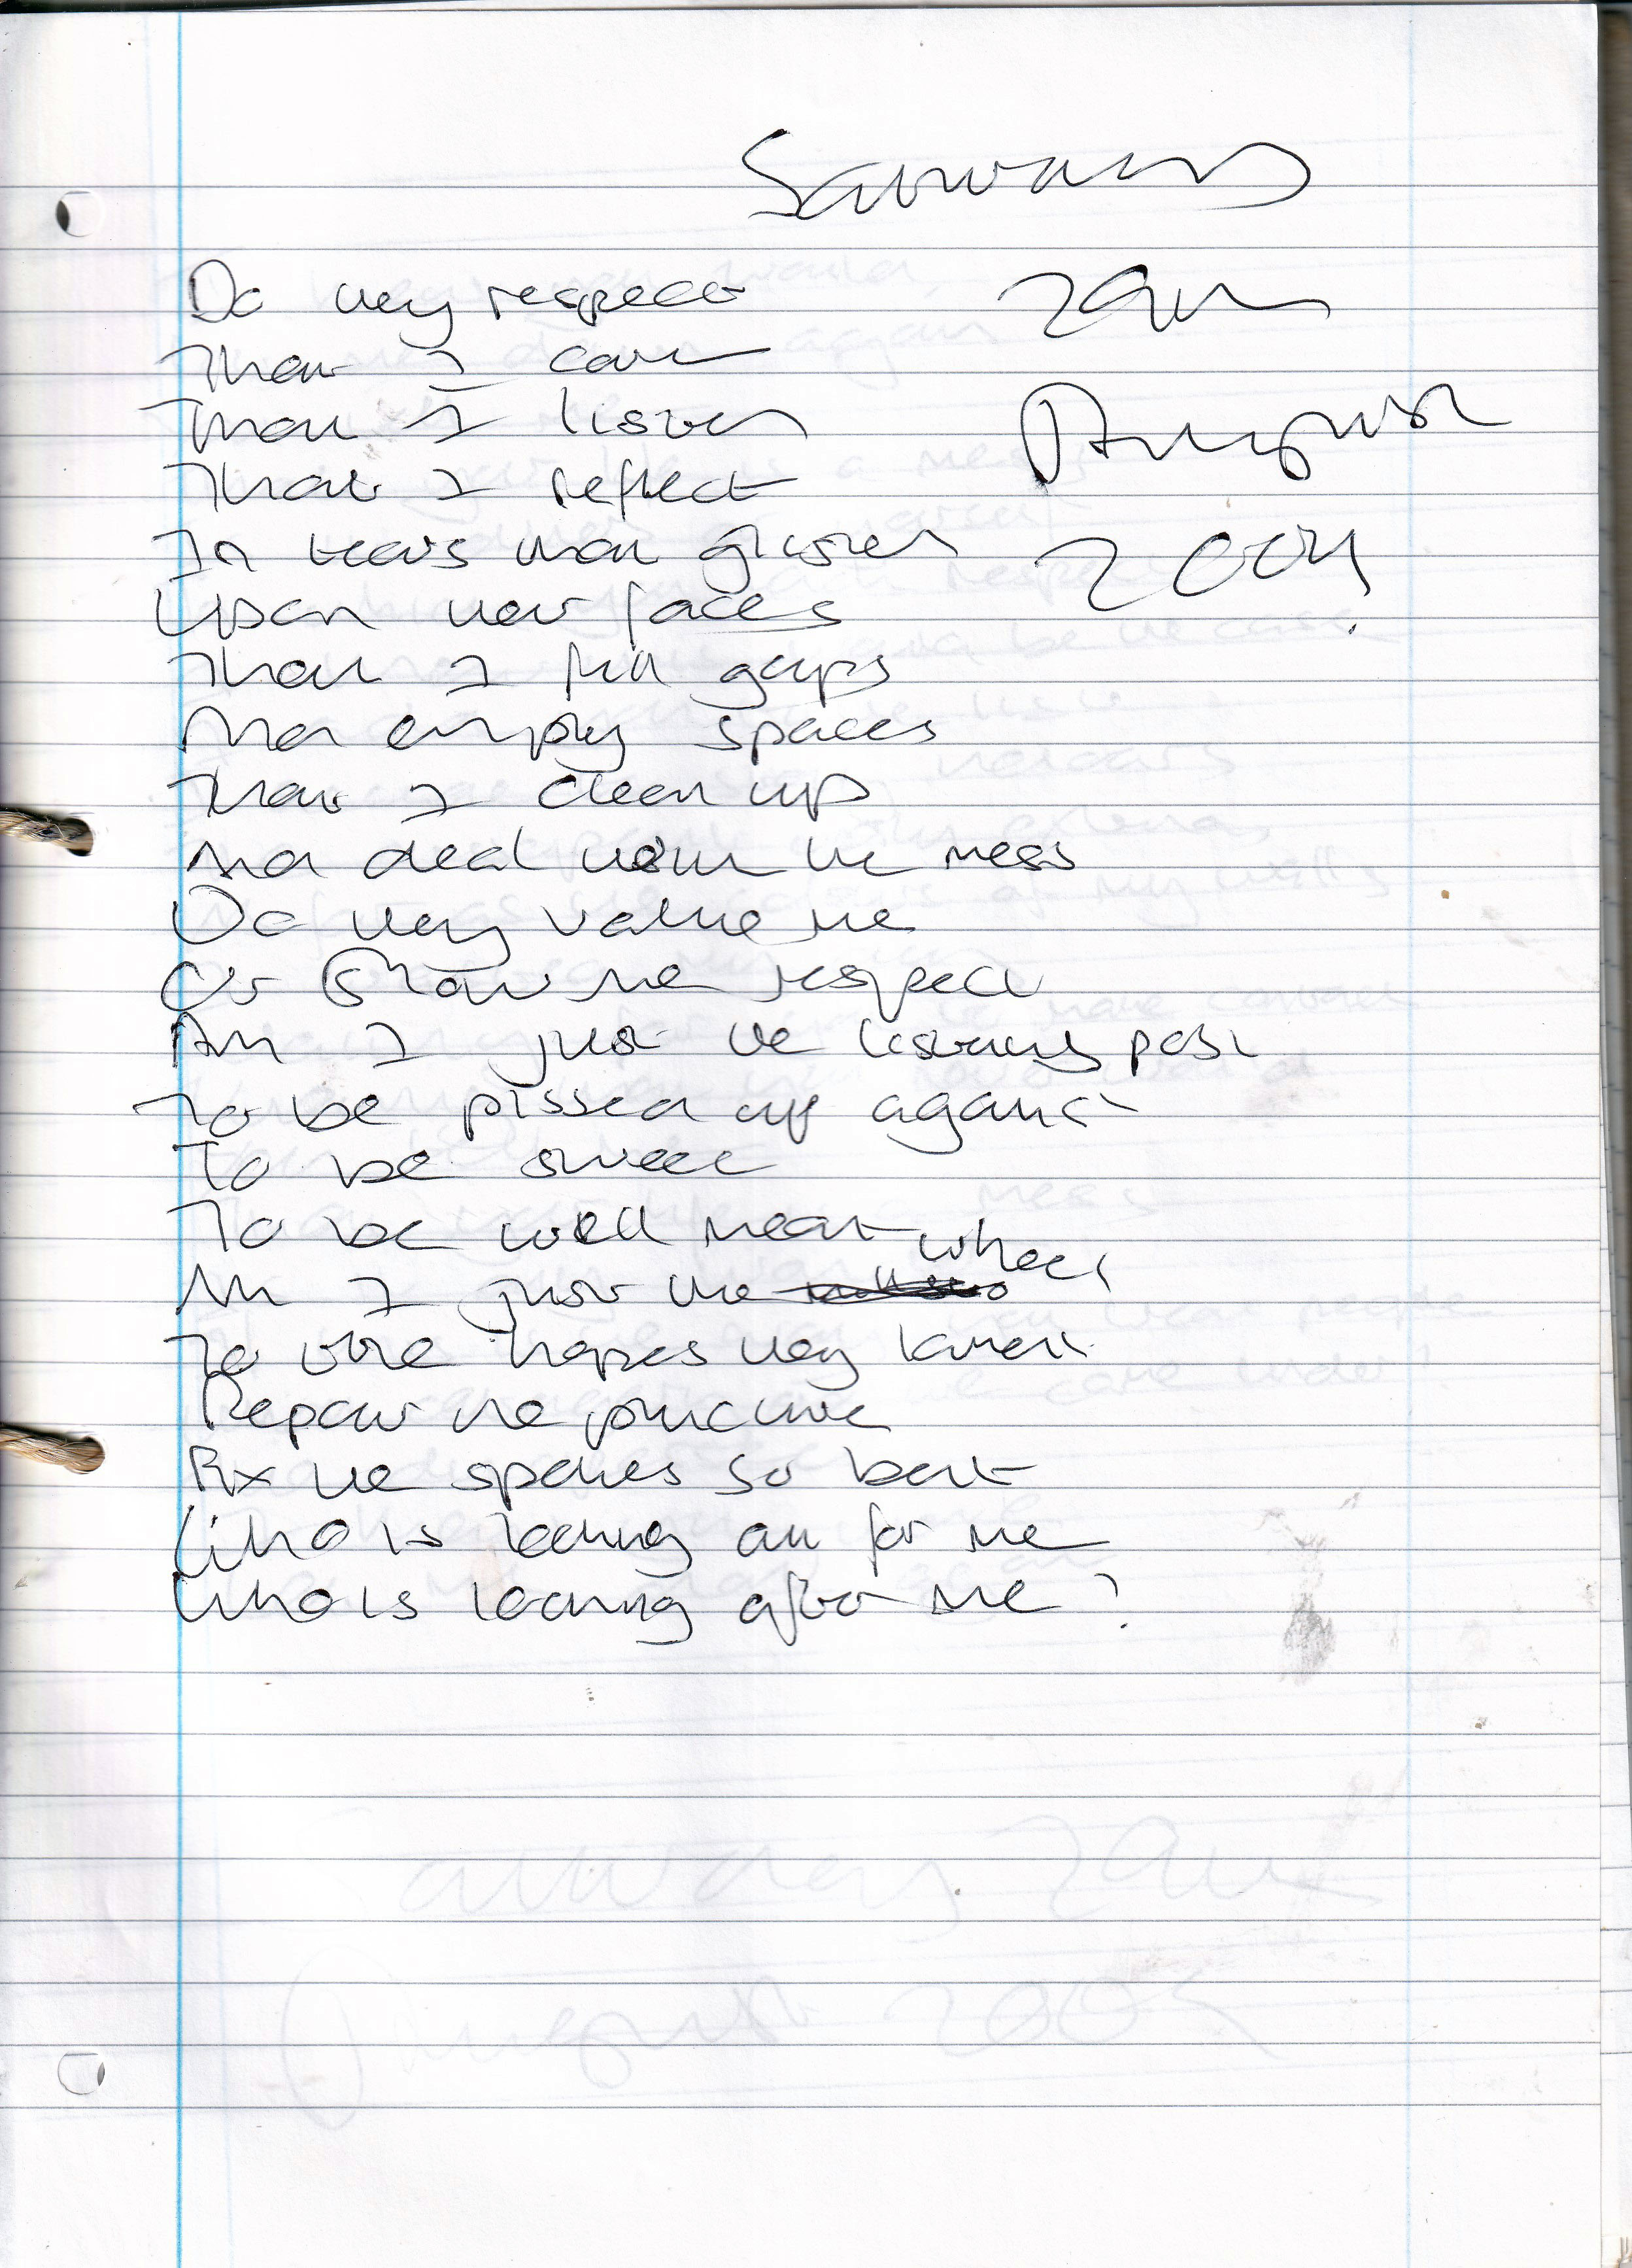 Saturday
29th
August
2009
Do they respect
That I care
That I listen
That I reflect
In tears that glisten
Upon their faces
That I fill gaps
And empty spaces
That I clean up
And deal with the mess
Do they value me
Or show me respect
Am I just the listening post
To be pissed up against
To be sweet
To be well meant
Am I just the wheel
To the hopes they
Repair the puncture
Fix the spokes so bent
Who is looking out for me
Who is looking after me?